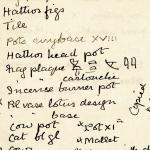 Hathor figs
Tile
Pote ring base XVIII
Hathor head pot
Frag plaque
cartouche
Incense burner pot
Bl vase lotus design
base
Cow pot "Pot XI a
Cat bl gl "Mallet
Cow
Copied